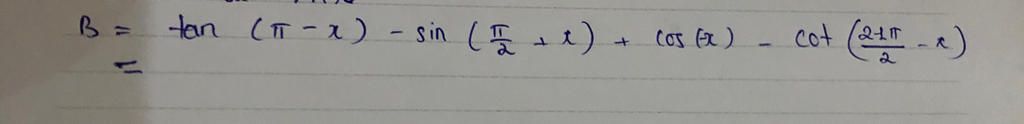 B = tan (π - x) - sin (π/2 + x) + cos (-x) - cot (21π/2 - x)
=